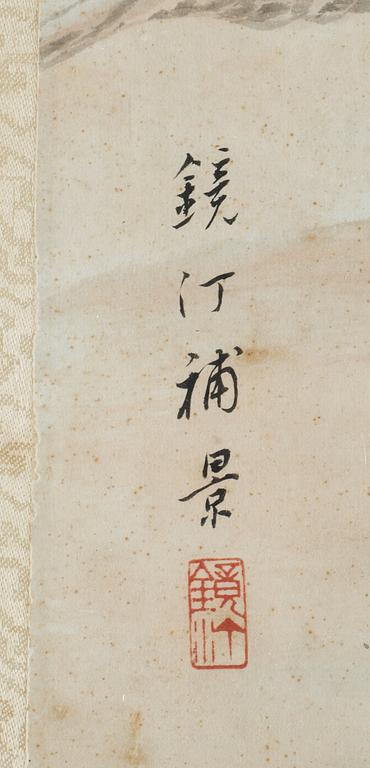 鏡汀補景
鏡汀